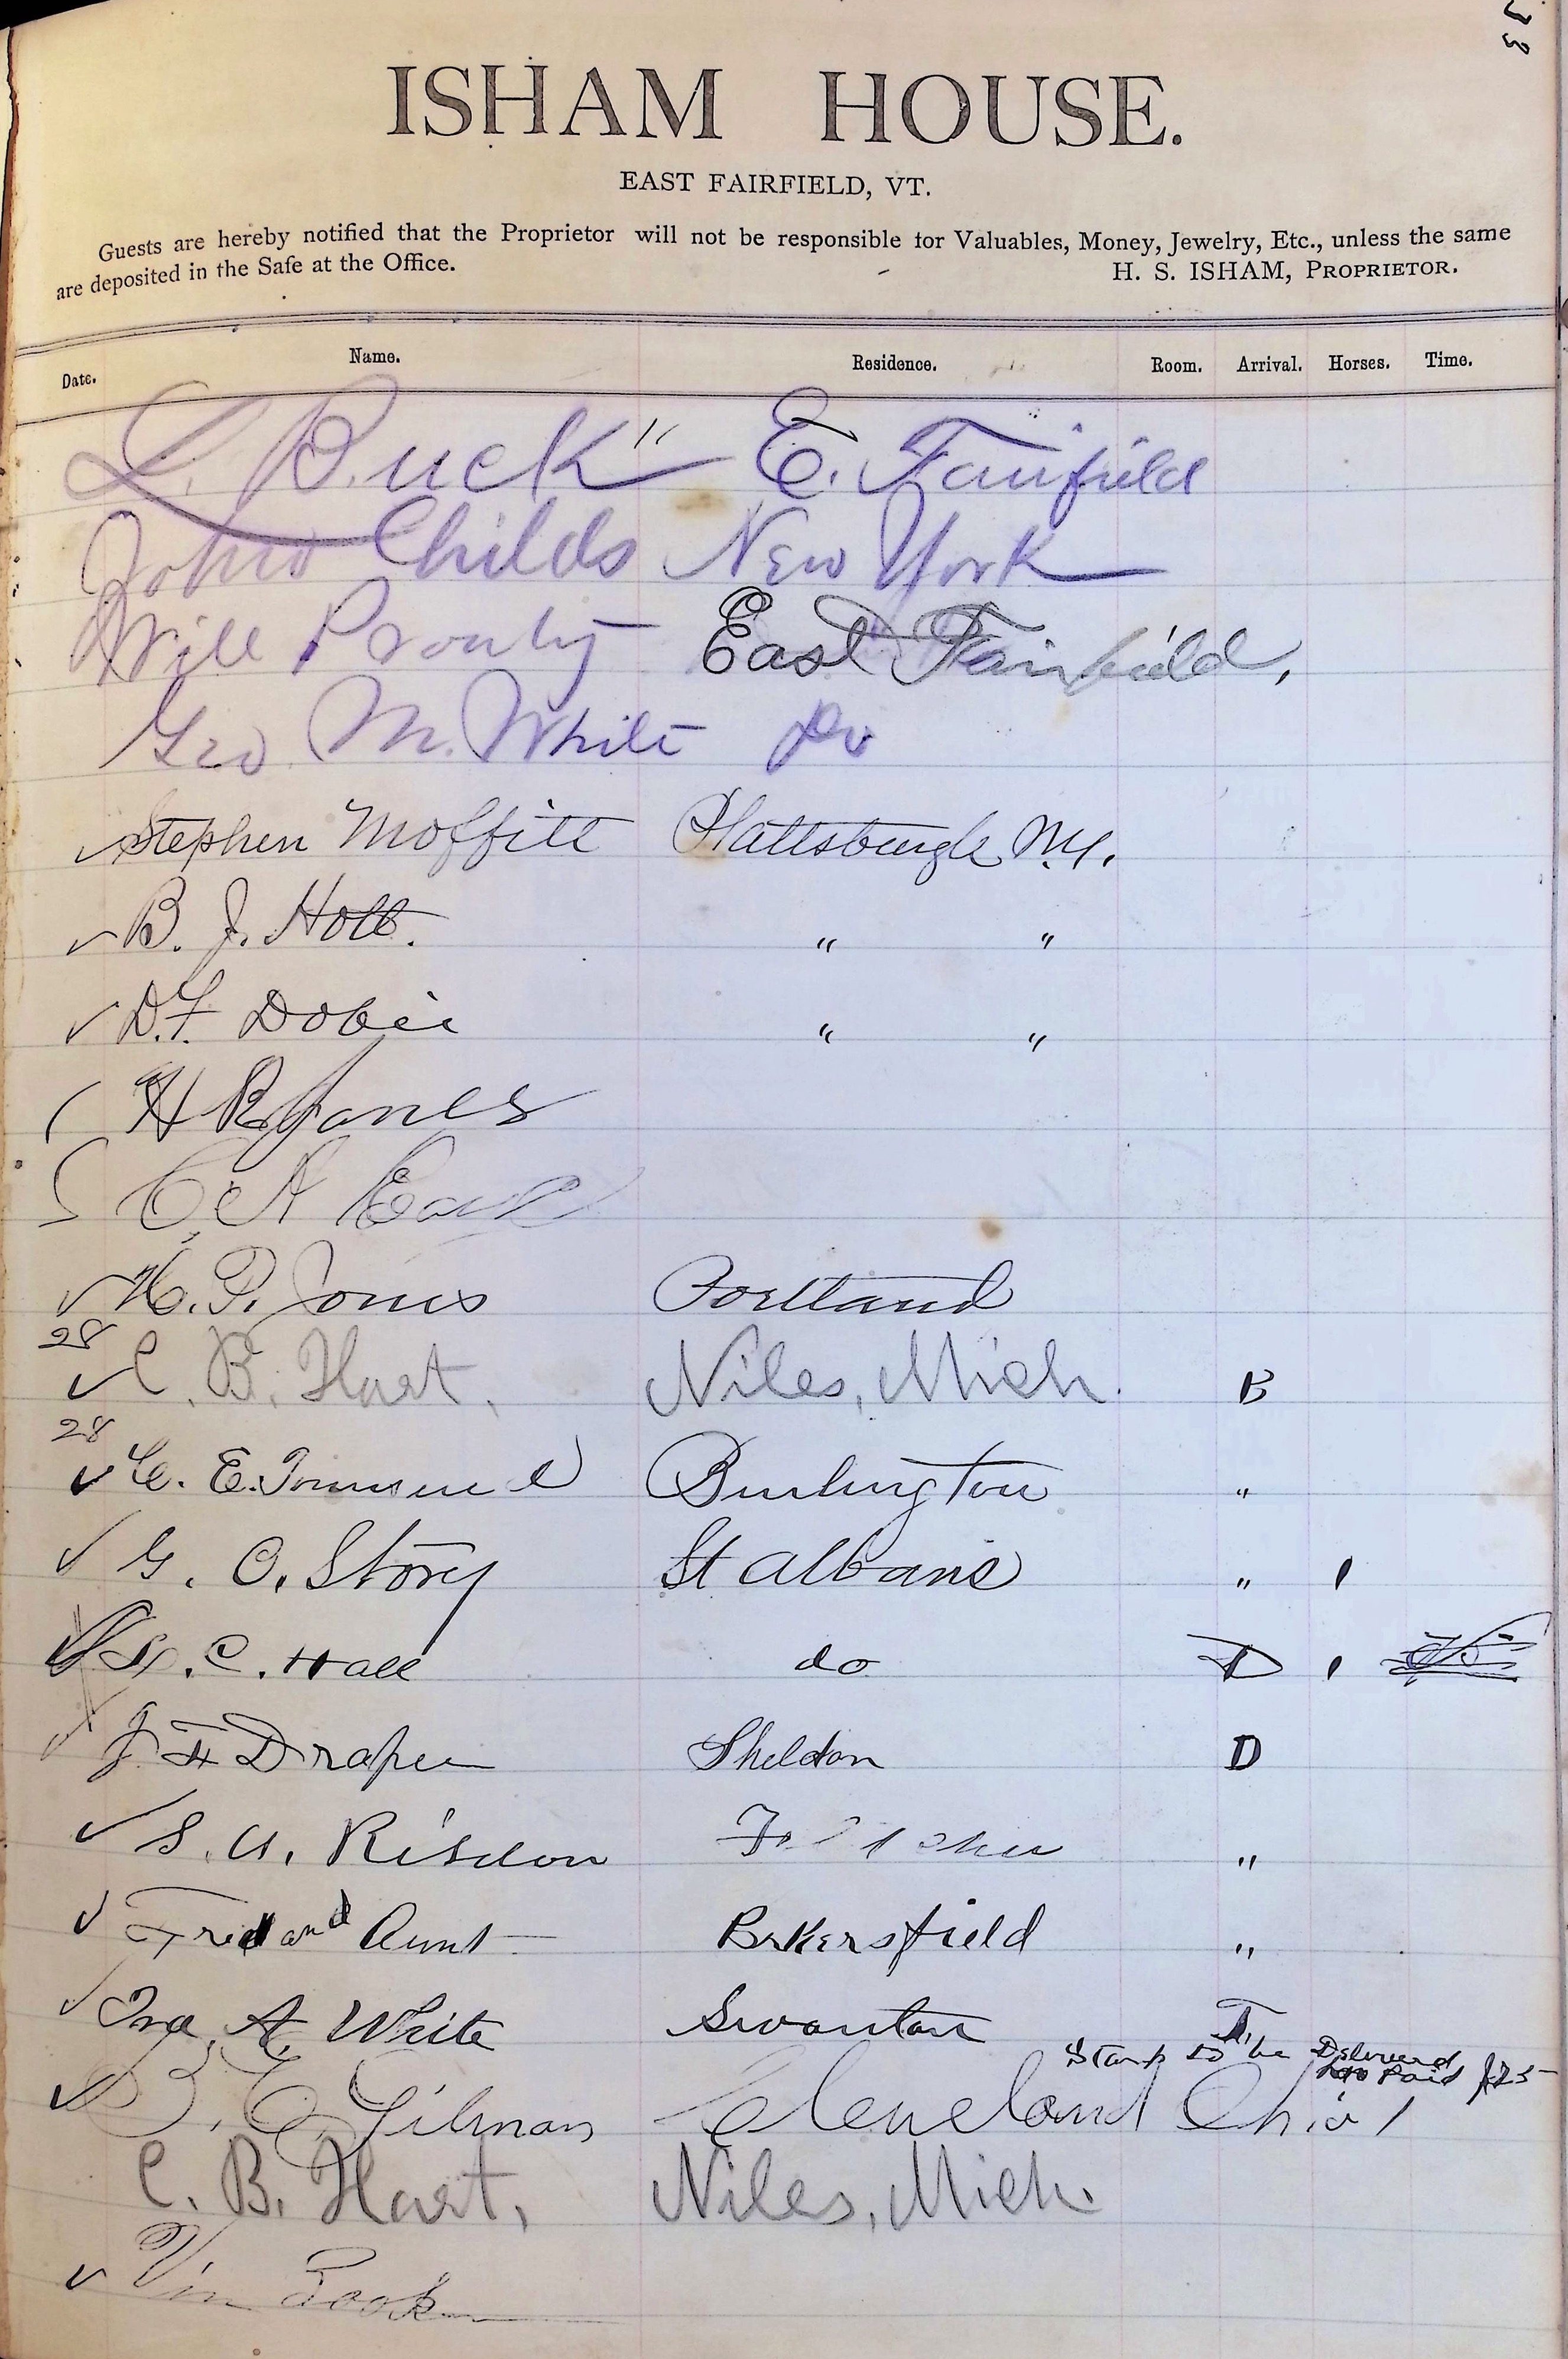 33
ISHAM HOUSE.
EAST FAIRFIELD, VT.
Guests are hereby notified that the Proprietor will not be responsible for Valuables, Money, Jewelry, Etc., unless the same
are deposited in the Safe at the Office. H. S. ISHAM, PROPRIETOR.
Date. Name. Residence. Room. Arrival. Horses. Time.
L. Buck " E. Fairfield
John Childs New York
Will Prouty East Fairfield,
Geo M. White Do
Stephen Moffitt Plattsburgh N.Y.
B. J. Holt. " "
D.F. Dobie " "
H R Jones
C. A
H. P. Jones Portland
28
C. B. Hart, Niles, Mich. B
28
C. E. Townsend Burlington "
G. O. Story St Albans " 1
C. Hall do D 1
J H Draper Sheldon D
S. A. Risdon "
Fred and Aunt Bakersfield "
Ira A. White Swanton T
to be Delivered
Paid
B. E. Gilman Cleveland Ohio 1
C. B. Hart, Niles, Mich.